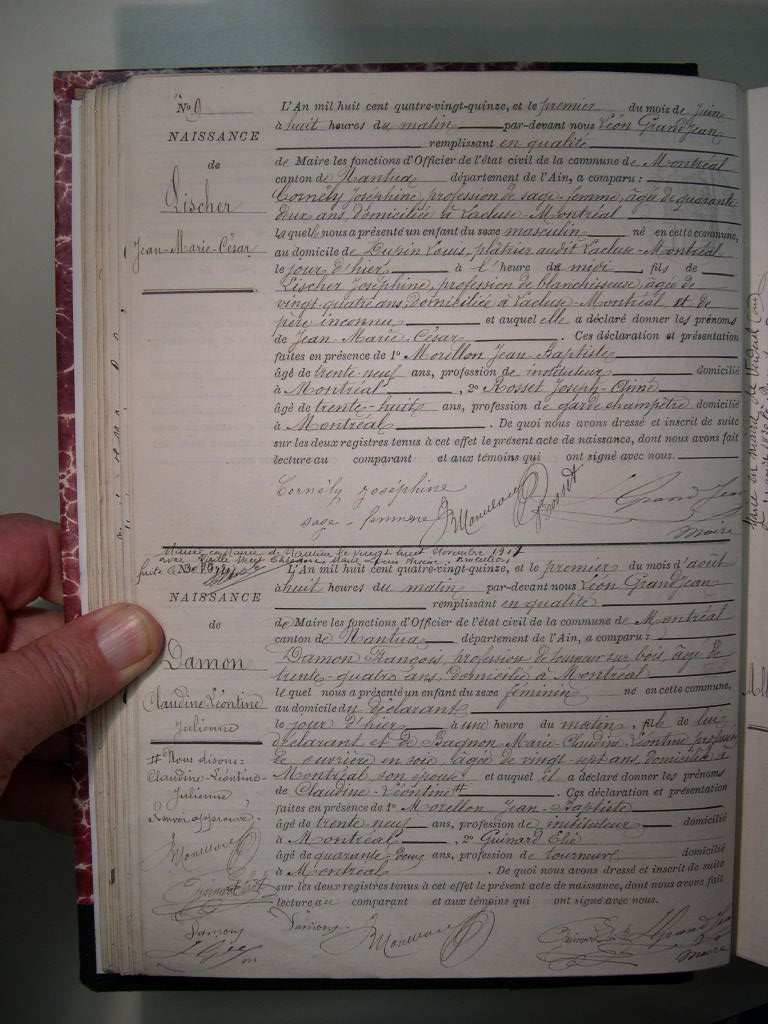 No 9
NAISSANCE
de
Lischer
Jean-Marie-César
L'An mil huit cent quatre-vingt-quinze, et le premier du mois de Juin
à huit heures du matin par-devant nous Léon Grandjean
remplissant en qualité
de Maire les fonctions d'Officier de l'état civil de la commune de Montréal
canton de Nantua département de l'Ain, a comparu :
Cornély Joséphine, profession de sage-femme, âgée de quarante-
deux ans, domiciliée à Lacluse-Montréal
laquelle nous a présenté un enfant du sexe masculin né en cette commune,
au domicile de Dupin Louis, plâtrier audit Lacluse-Montréal
le jour d'hier à l'heure de midi, fils de
Lischer Joséphine, profession de blanchisseuse, âgée de
vingt-quatre ans, domiciliée à Lacluse-Montréal et de
père inconnu et auquel elle a déclaré donner les prénoms
de Jean-Marie César. Ces déclaration et présentation
faites en présence de 1° Morillon Jean-Baptiste
âgé de trente-neuf ans, profession de instituteur domicilié
à Montréal, 2° Rosset Joseph-Aimé
âgé de trente-huit ans, profession de garde champêtre domicilié
à Montréal. De quoi nous avons dressé et inscrit de suite
sur les deux registres tenus à cet effet le présent acte de naissance, dont nous avons fait
lecture au comparant et aux témoins qui ont signé avec nous.
Cornély Joséphine
sage-femme
Rosset
Grand Jean
maire
NAISSANCE
de
Damon
Claudine Léontine
Julienne
# Nous disons:
Claudine-Léontine-
Julienne
Renvoi approuvé
L'An mil huit cent quatre-vingt-quinze, et le premier du mois d'août
à huit heures du matin par-devant nous Léon Grandjean
remplissant en qualité
de Maire les fonctions d'Officier de l'état civil de la commune de Montréal
canton de Nantua, département de l'Ain, a comparu :
Damon François, profession de tourneur sur bois, âgé de
trente-quatre ans, domicilié à Montréal
lequel nous a présenté un enfant du sexe féminin né en cette commune,
au domicile du déclarant
le jour d'hier à une heure du matin, fille de lui
déclarant et de Marie-Claudine Léontine, profession
de ouvrière en soie, âgée de vingt-sept ans, domiciliée à
Montréal son épouse et auquel il a déclaré donner les prénoms
de Claudine-Léontine #. Ces déclaration et présentation
faites en présence de 1° Morillon Jean-Baptiste
âgé de trente neuf ans, profession de instituteur domicilié
à Montréal, 2° Guinard Elie
âgé de quarante-deux ans, profession de tourneur domicilié
à Montréal. De quoi nous avons dressé et inscrit de suite
sur les deux registres tenus à cet effet le présent acte de naissance, dont nous avons fait
lecture au comparant et aux témoins qui ont signé avec nous.
Grand Jean
maire